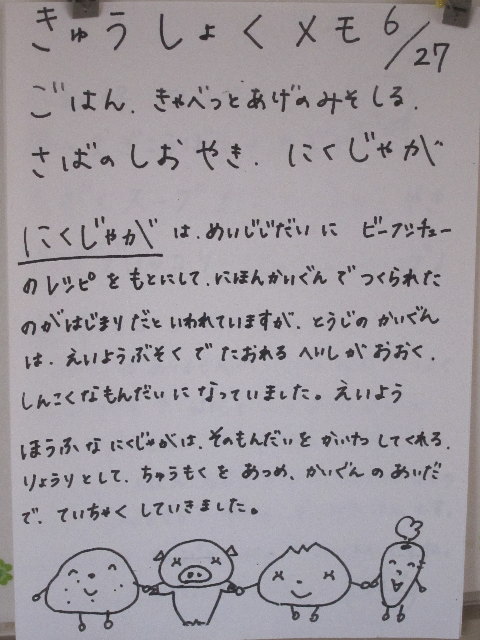 きゅうしょくメモ 6/27
ごはん、きゃべつとあげのみそしる、
さばのしおやき、にくじゃが
にくじゃがは、めいじじだいに ビーフシチュー
のレシピをもとにして、にほんかいぐんでつくられた
のがはじまりだといわれていますが、とうじのかいぐん
は、えいようぶそくでたおれるへいしがおおく、
しんこくなもんだいになっていました。えいよう
ほうふなにくじゃがは、そのもんだいをかいけつしてくれる、
りょうりとして、ちゅうもくをあつめ、かいぐんのあいだ
で、ていちゃくしていきました。